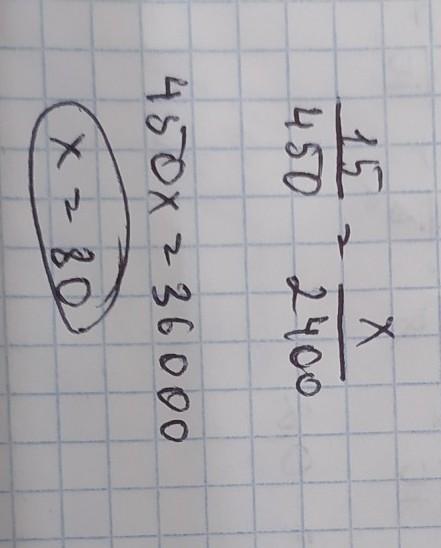 15/450 = x/2400
450x = 36000
x = 80